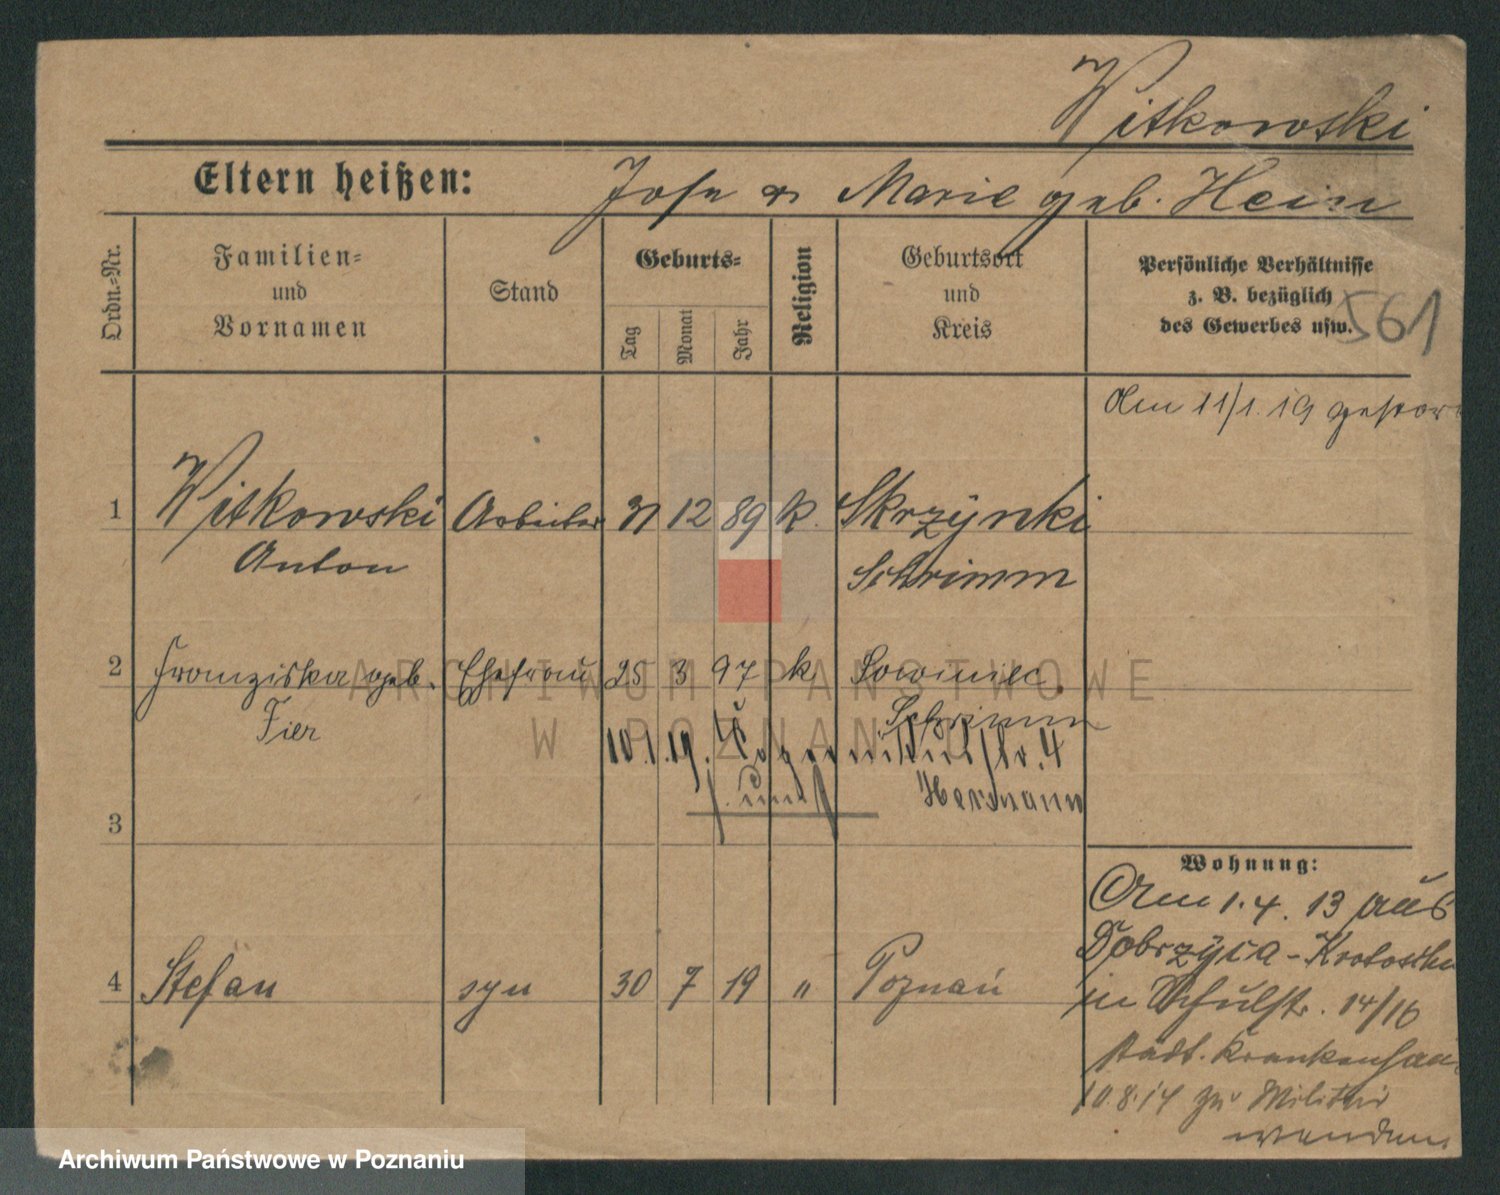 Witkowski
Eltern heißen: Josef & Marie geb. Hein
Ordn.-Nr.
Familien-
und
Vornamen
Stand
Geburts-
Tag
Monat
Jahr
Religion
Geburtsort
und
Kreis
Persönliche Verhältnisse
z. B. bezüglich
des Gewerbes usw.
561
Am 11/1.19
1 Witkowski Arbeiter 31 12 89 k. Skrzynki
Anton Schrimm
2 Franziska geb. Ehefrau 25 3 97 k. Sowiniec
Fier Schrimm
10.1.19. 4
Hermann
3
Wohnung:
Am 1.4.13 aus
Dobrzyca - Krotoschin
in Schulstr. 14/16
städt. Krankenhaus
10.8.14 zu Militär
wenden.
4 Stefan syn 30 7 19 " Poznań
ARCHIWUM PAŃSTWOWE
W POZNANIU
Archiwum Państwowe w Poznaniu